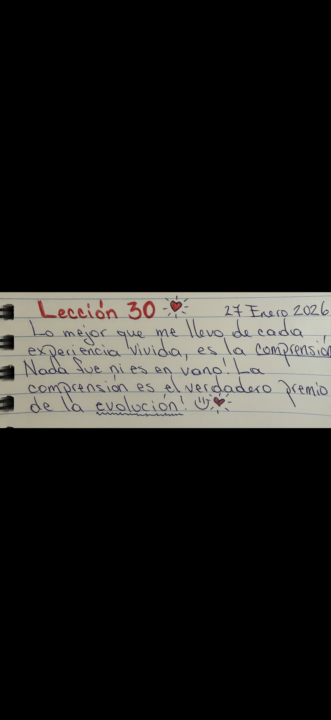 Lección 30 27 Enero 2026
Lo mejor que me llevo de cada
experiencia vivida, es la comprensión
Nada fue ni es en vano! La
comprensión es el verdadero premio
de la evolución!